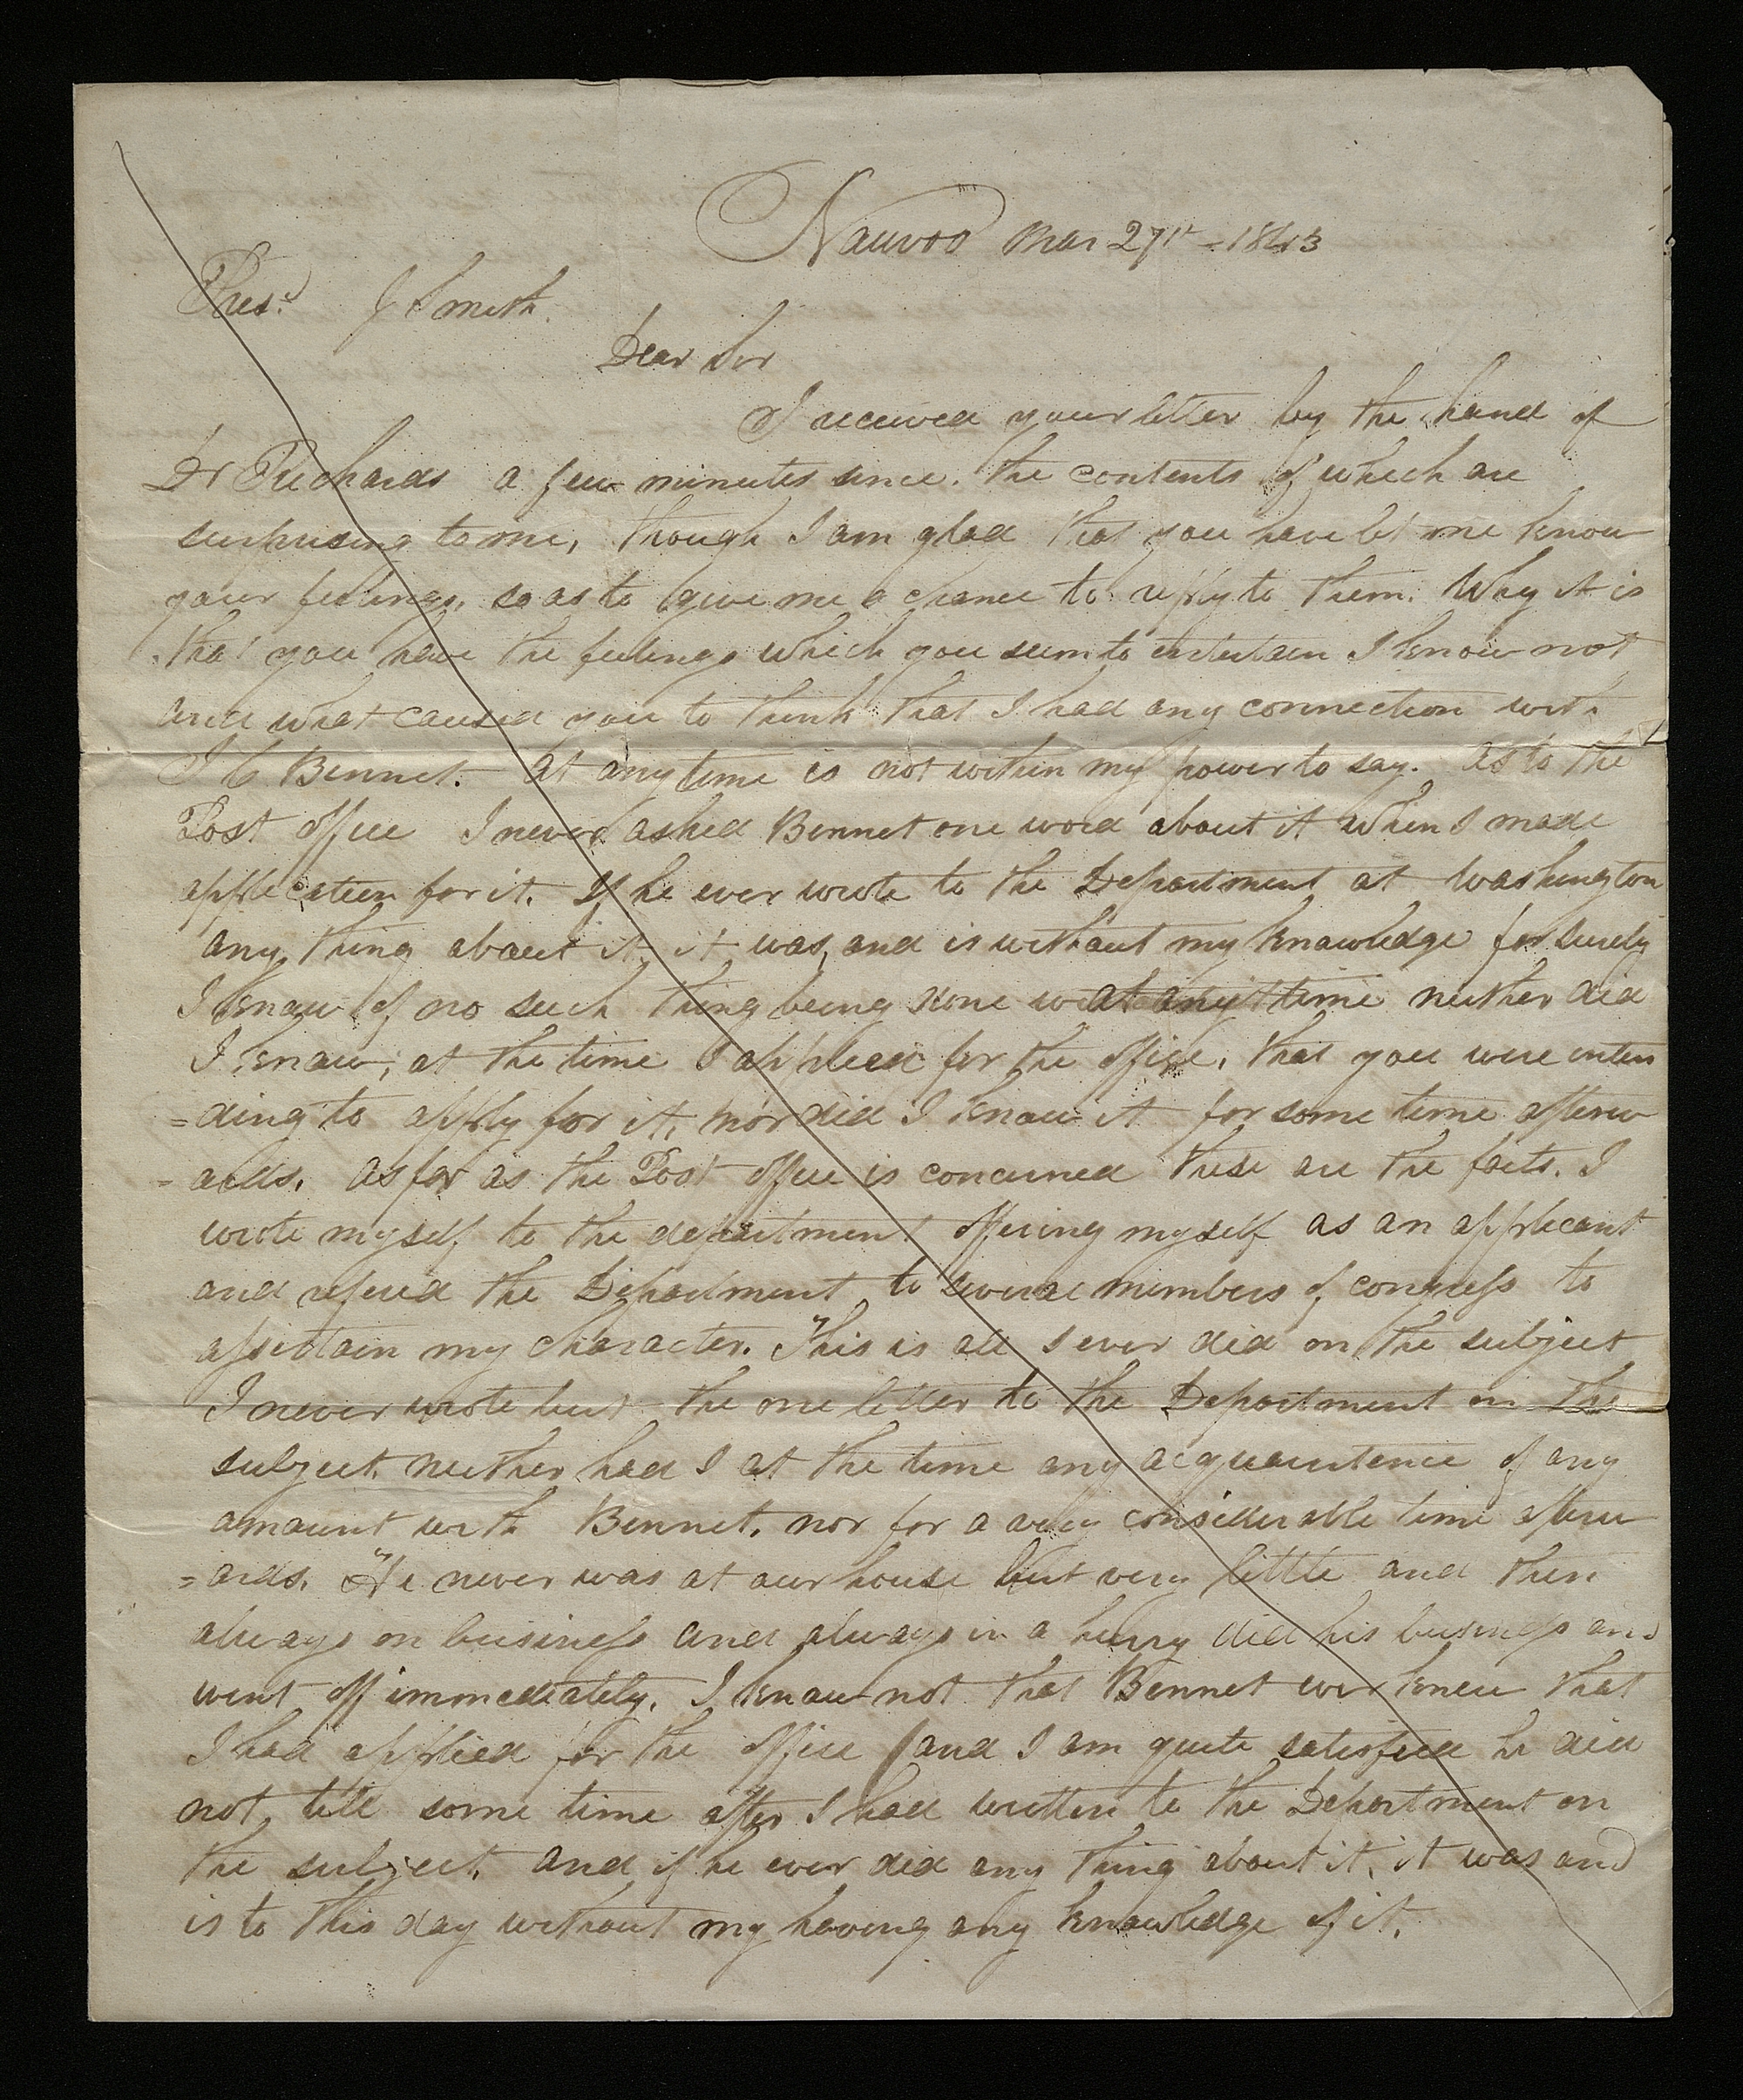 Nauvoo Mar 27th - 1843
Prest. J Smith.
Dear Sir
I received your letter by the hand of
Dr Richards a few minutes since. the contents of which are
surprising to me, though I am glad that you have let me know
your feelings, so as to give me a chance to reply to them. Why it is
that you have the feelings which you seem to entertain I know not
and what caused you to think that I had any connection with
J C Bennet. at any time is not within my power to say. as to the
Post office I never asked Bennet one word about it when I made
application for it. If he ever wrote to the Department at Washington
any thing about it, it was, and is without my knowledge for surely
I know of no such thing being done at any time neither did
I know, at the time I applied for the office, that you were inten
=ding to apply for it, nor did I know it for some time afterw
=ards. as far as the Post office is concerned these are the facts. I
wrote myself to the department offering myself as an applicant
and refered the Department to several members of congress to
assertain my character. This is all I ever did on the subject
I never wrote but the one letter to the Department on the
subject. neither had I at the time any acquaintence of any
amount with Bennet. nor for a very considerable time afterw
=ards. He never was at our house but very little and then
always on business and always in a hurry did his business and
went off immediately. I know not that Bennet ever knew that
I had applied for the office (and I am quite satisfied he did
not, till some time after I had written to the Department on
the subject. and if he ever did any thing about it, it was and
is to this day without my having any knowledge of it.